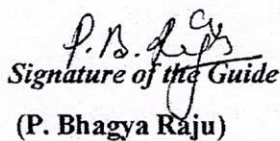 P. B. Raju
Signature of the Guide
(P. Bhagya Raju)